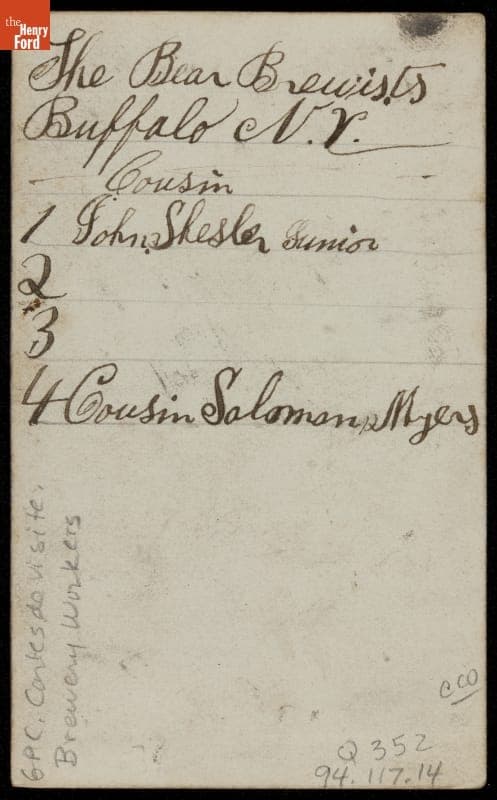 the
Henry
Ford
The Bear Brewists
Buffalo N.Y.
Cousin
1 John Shesler Junior
2
3
4 Cousin Saloman Myers
6PC. Cartes de visite.
Brewery Workers
cco
Q 352
94.117.14